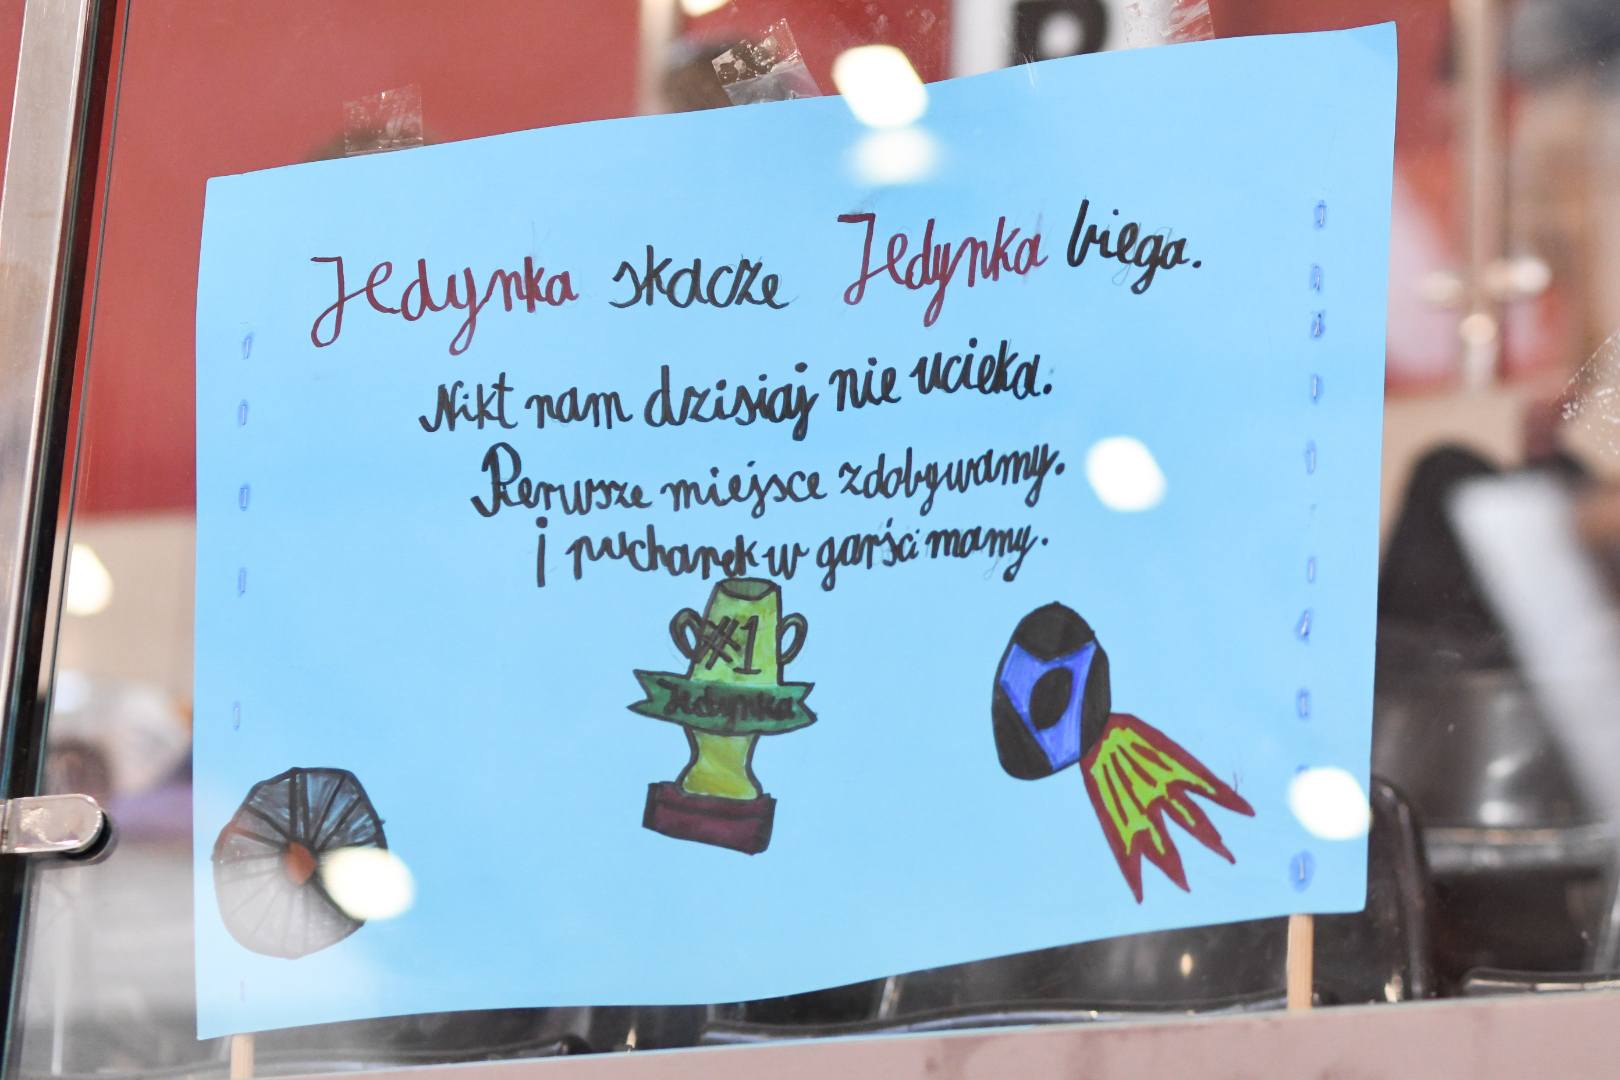 Jedynka skacze Jedynka biega.
Nikt nam dzisiaj nie ucieka.
Pierwsze miejsce zdobywamy.
i pucharek w garści mamy.
#1
Jedynka